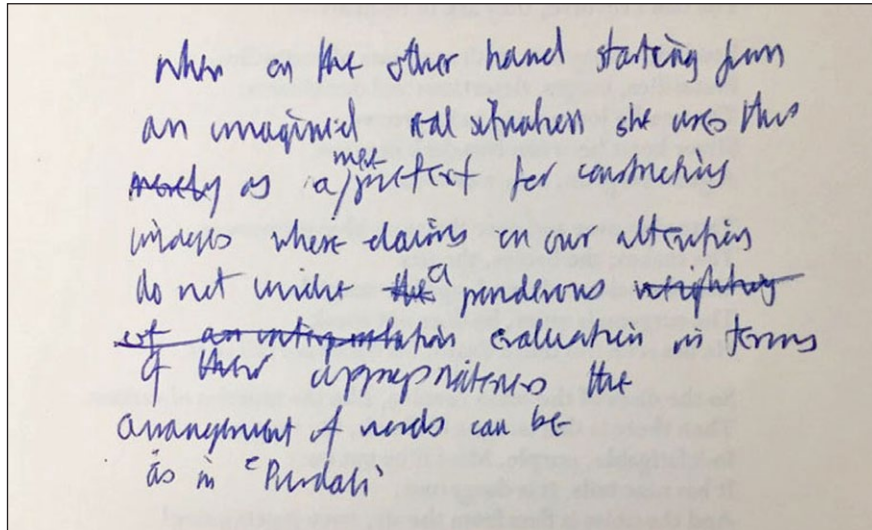 when on the other hand starting from
an imagined real situation she uses this
merely as a mere pretext for constructing
images whose claims on our attention
do not invite the a ponderous weighting
of an interpretation evaluation in terms
of their appropriateness the
arrangement of words can be
as in 'Purdah'